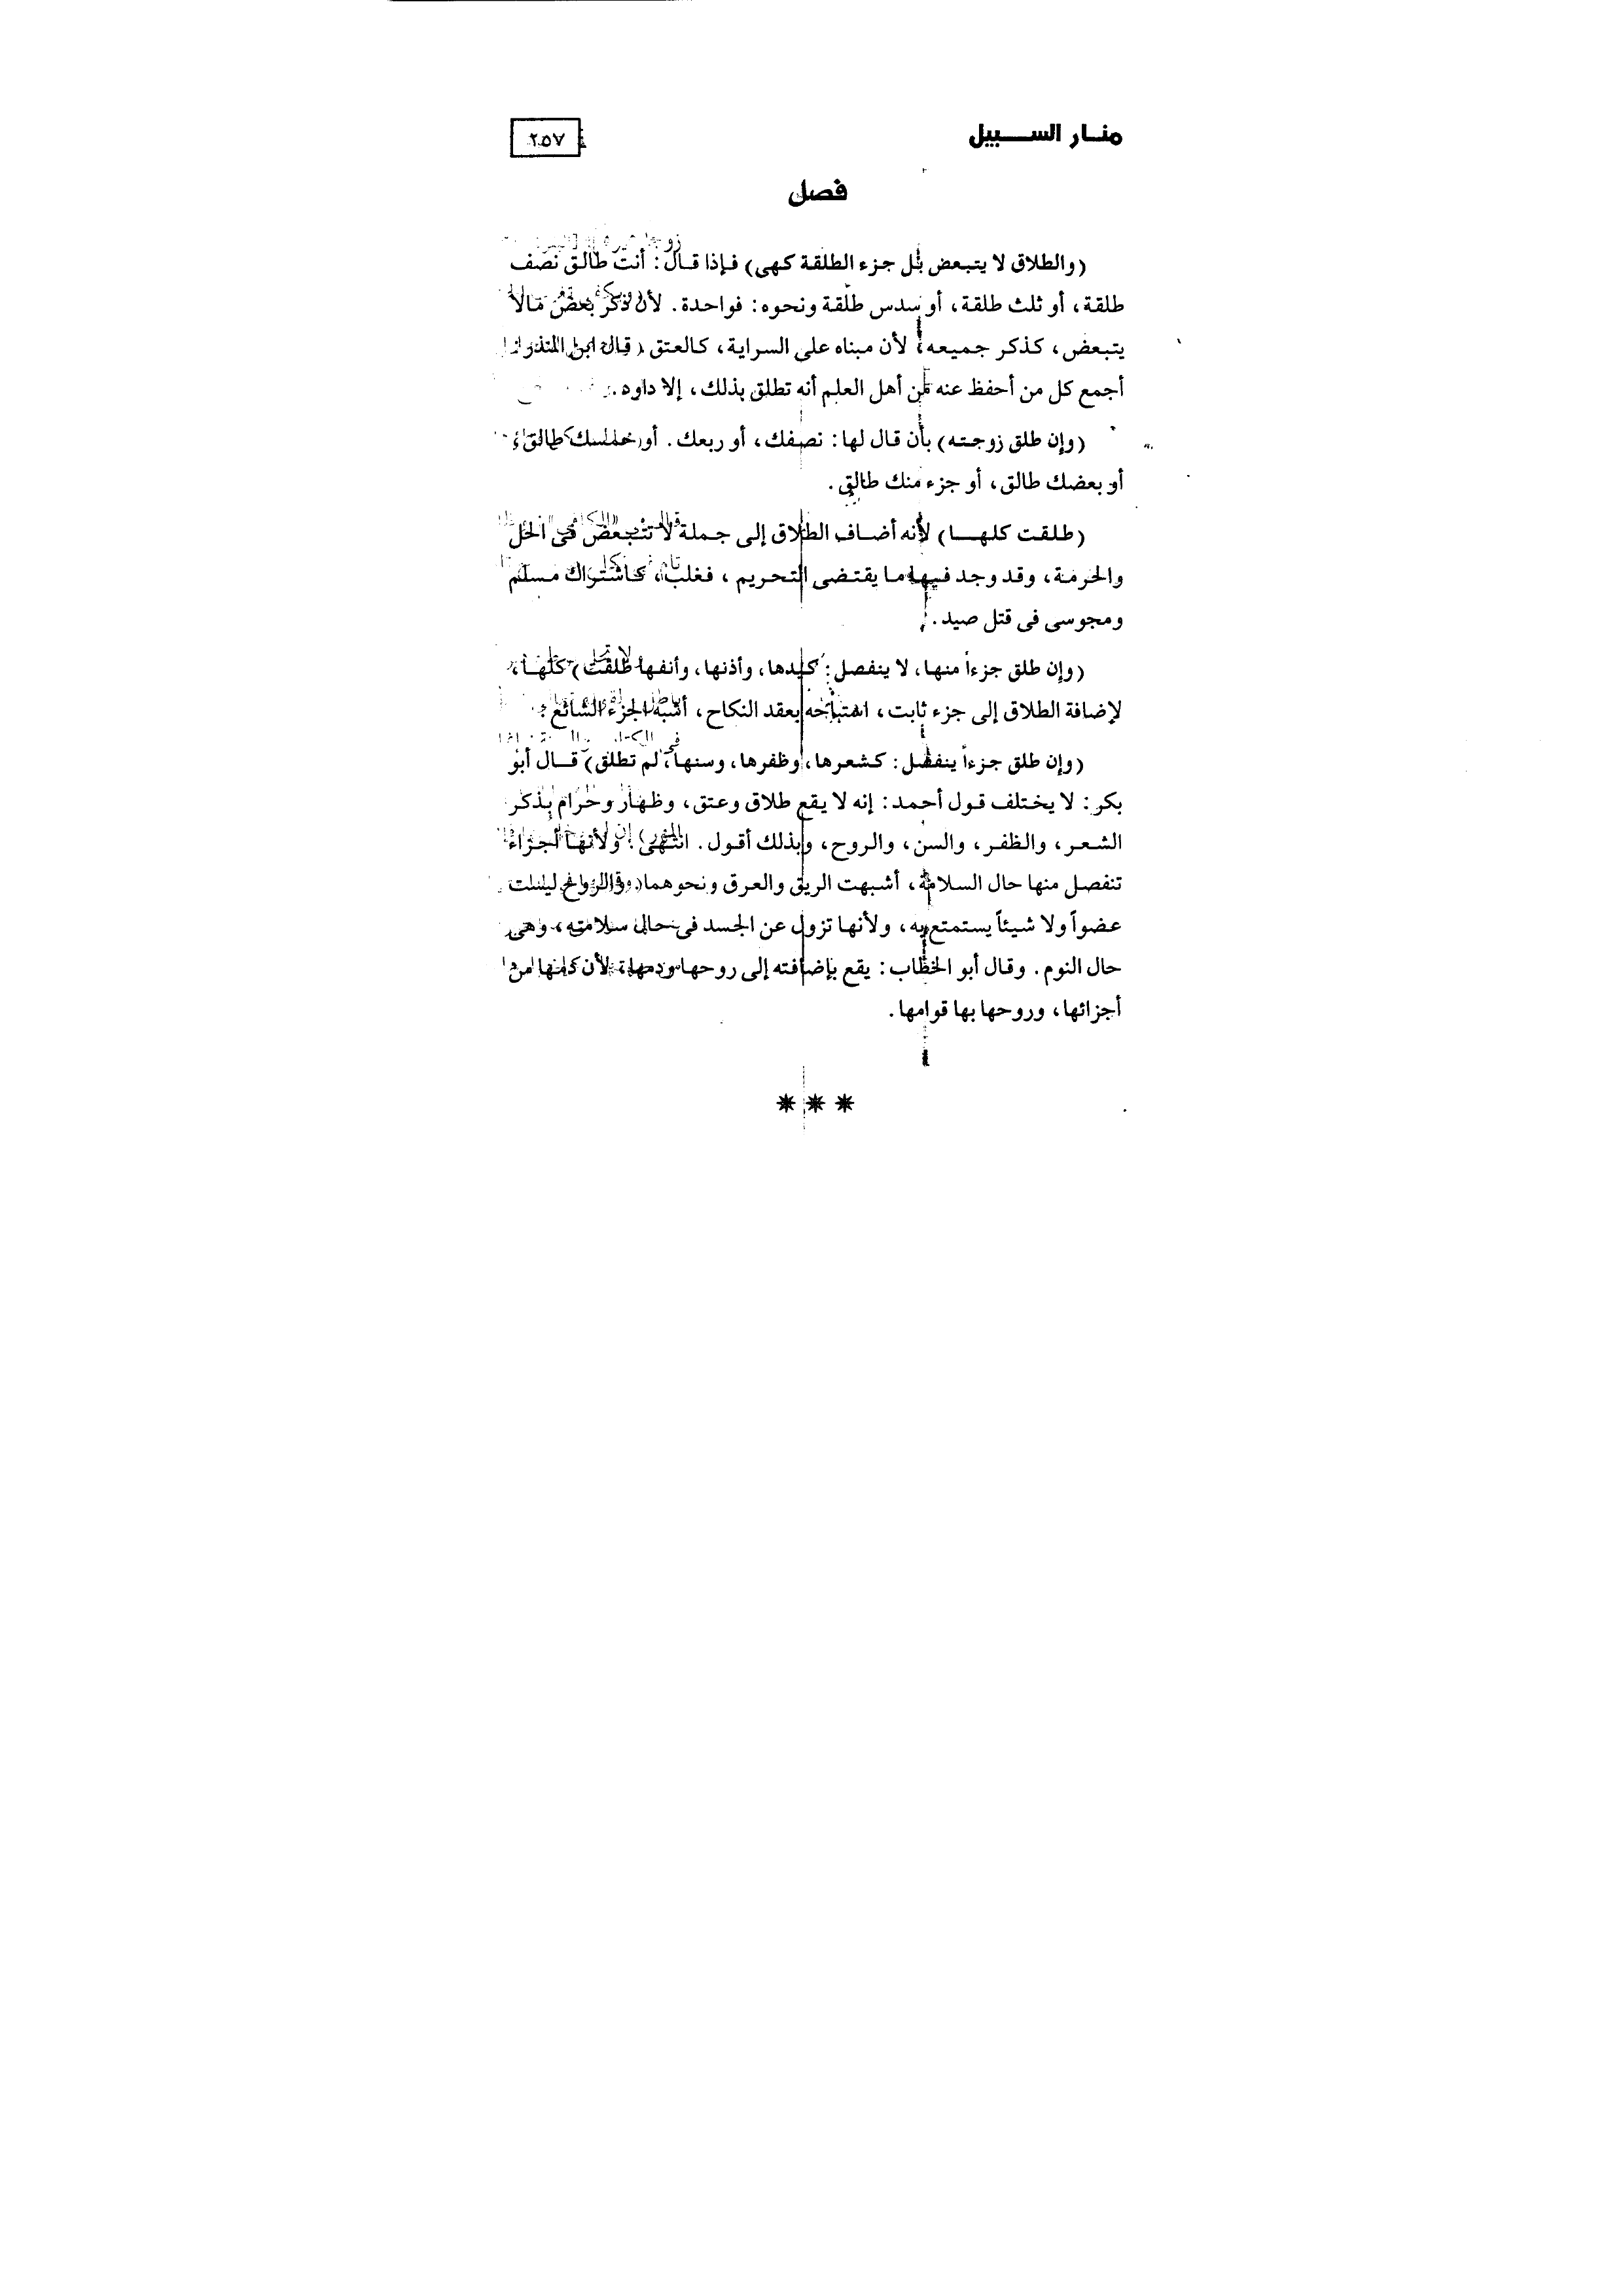 منار السبيل
٢٥٧
فصل
(والطلاق لا يتبعض بل جزء الطلقة كهى) فإذا قال: أنت طالق نصف
طلقة، أو ثلث طلقة، أو سدس طلقة ونحوه: فواحدة. لأن ذكر بعض مالا
يتبعض، كذكر جميعه، لأن مبناه على السراية، كالعتق، قال ابن المنذر:
أجمع كل من أحفظ عنه من أهل العلم أنه تطلق بذلك، إلا داود.
(وإن طلق زوجته) بأن قال لها: نصفك، أو ربعك. أو خمسك طالق،
أو بعضك طالق، أو جزء منك طالق.
(طلقت كلها) لأنه أضاف الطلاق إلى جملة لا تتبعض فى الحل
والحرمة، وقد وجد فيها ما يقتضى التحريم، فغلب، كاشتراك مسلم
ومجوسى فى قتل صيد.
(وإن طلق جزءاً منها، لا ينفصل: كيدها، وأذنها، وأنفها طلقت) كلها،
لإضافة الطلاق إلى جزء ثابت، استباحه بعقد النكاح، أشبه الجزء الشائع.
(وإن طلق جزءاً ينفصل: كشعرها، وظفرها، وسنها، لم تطلق) قال أبو
بكر: لا يختلف قول أحمد: إنه لا يقع طلاق وعتق، وظهار وحرام بذكر
الشعر، والظفر، والسن، والروح، وبذلك أقول. انتهى. ولأنها أجزاء
تنفصل منها حال السلامة، أشبهت الريق والعرق ونحوهما، والروح ليست
عضواً ولا شيئاً يستمتع به، ولأنها تزول عن الجسد فى حال سلامته، وهى
حال النوم. وقال أبو الخطاب: يقع بإضافته إلى روحها ودمها، لأن دمها من
أجزائها، وروحها بها قوامها.